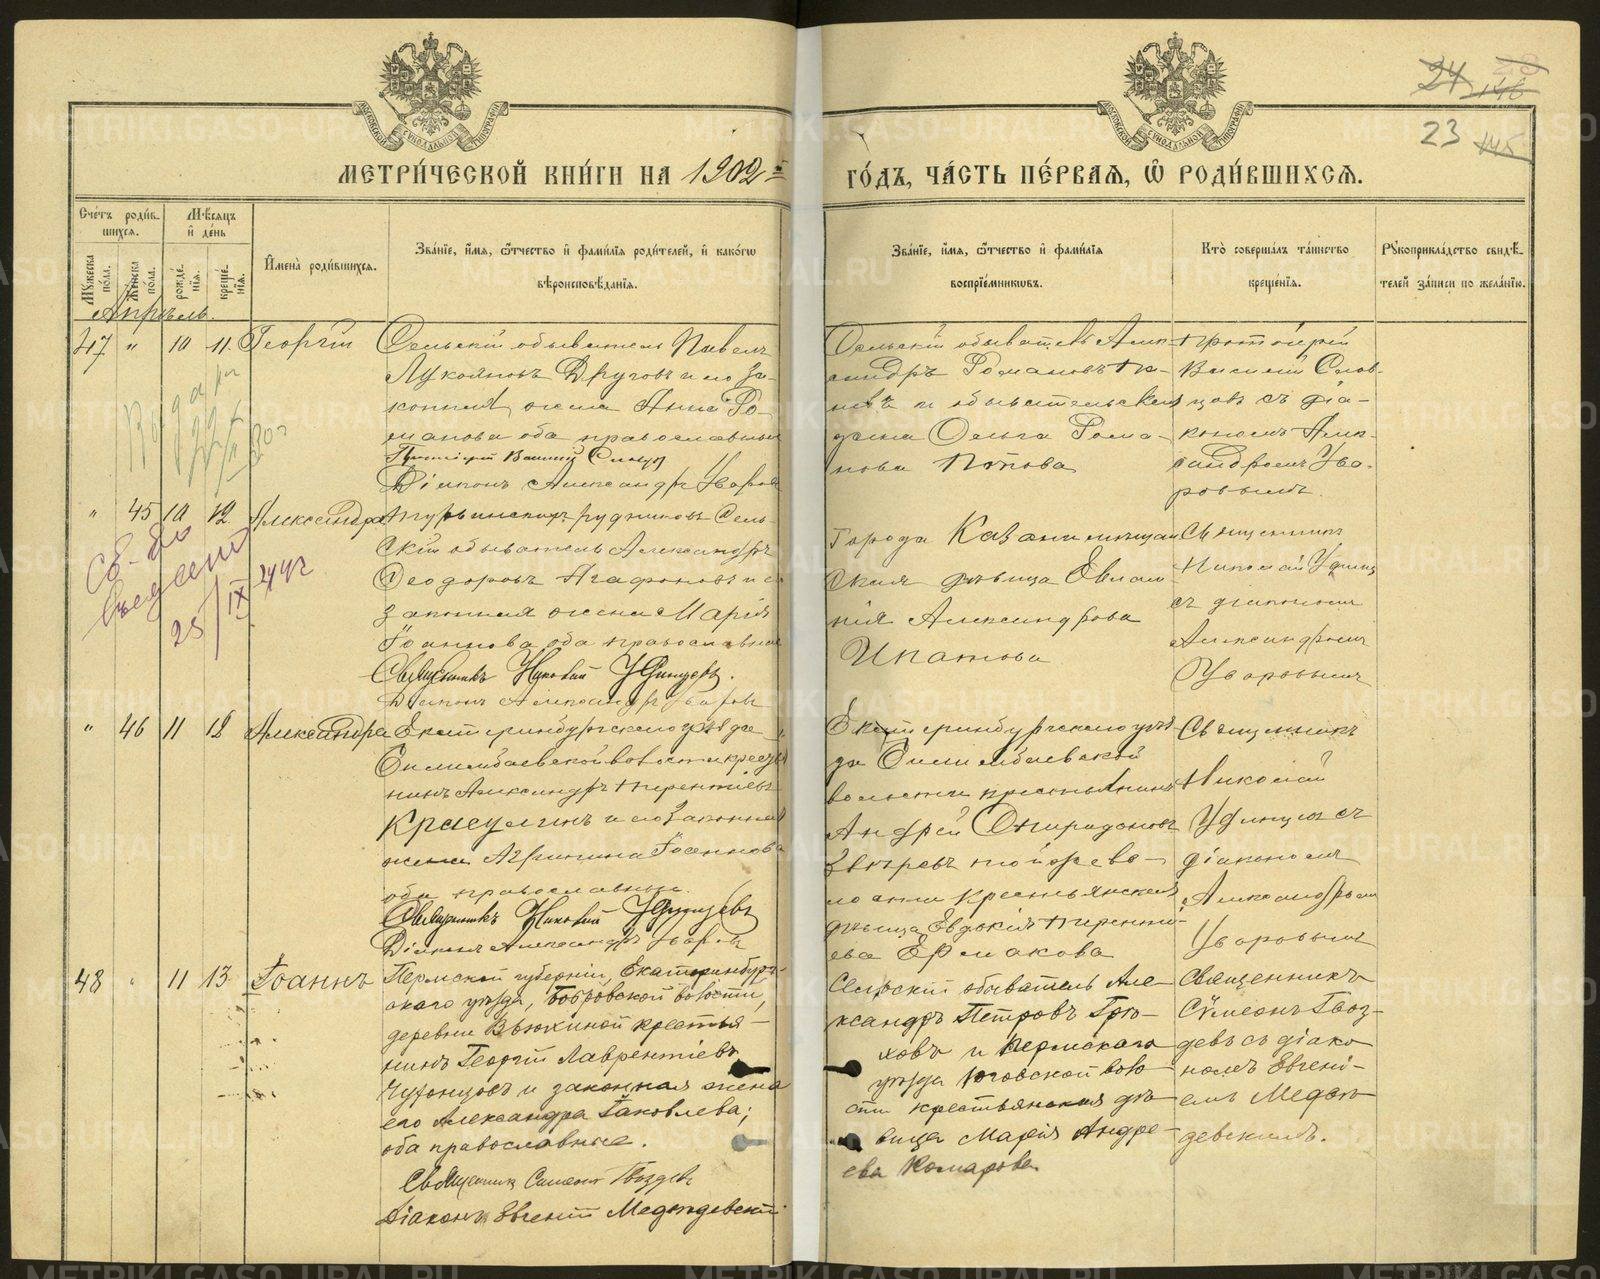 МЕТРИ́ЧЕСКОЙ КНИ́ГИ НА 1902 й
ГО́ДЪ, ЧА́СТЬ ПЕ́РВАЯ, Ѽ РОДИ́ВШИХСЯ.
24
146
23
145
Сче́тъ роди́в-
шихся.
Мѣ́сяцъ
и де́нь
Му́жеска
по́ла.
Же́нска
по́ла.
рожде́-
нїя.
креще́-
нїя.
И҆мена̀ роди́вшихся.
Зва́нїе, и҆́мя, ѻ҆́тчество и҆ фами́лїя роди́телей, и҆ како́гѡ
вѣроисповѣ́данїя.
Зва́нїе, и҆́мя, ѻ҆́тчество и҆ фами́лїя
воспрїе́мникѡвъ.
Кто̀ соверша́лъ та́инство
креще́нїя.
Рꙋкоприкла́дство свидѣ́-
телей за́писи по жела́нїю.
Апрѣль.
47 " 10 11 Георгій
Сельскій обыватель Павелъ
Лукояновъ Друговъ и его за-
конная жена Анна Ро-
манова оба православные
Протоіерей Василій Словцовъ
Діаконъ Александръ Уваровъ
Сельскій обыватель Алек-
сандръ Романовъ
и обывательская
Ольга Рома-
нова Попова
Протоіерей
Василій Слов-
цовъ съ діа-
кономъ Алек-
сандромъ Ува-
ровымъ.
" 45 10 12 Александра
Турьинскихъ рудниковъ Сель-
скій обыватель Александръ
Ѳеодоровъ Агафоновъ и его
законная жена Марія
Іоаннова оба православные
Священникъ Николай Удинцевъ.
Діаконъ Александръ Уваровъ
Города Казани мѣщан-
ская дѣвица Евлам-
пія Александрова
Ипатова
Священникъ
Николай Удинц
съ діакономъ
Александромъ
Уваровымъ
25/IX
" 46 11 12 Александра
Екатеринбургскаго уѣзда
Билимбаевской волости кресть-
нинъ Александръ Терентіевъ
Красулинъ и его законная
жена Агрипина Іоаннова
оба православные.
Священникъ Николай Удинцевъ
Діаконъ Александръ Уваровъ
Екатеринбургскаго уѣз-
да Билимбаевской
волости крестьянинъ
Андрей Спиридоновъ
Звѣревъ и той же во-
лости крестьянская
дѣвица Евдокія Терентіе-
ева Ермакова
Священникъ
Николай
Удинцевъ съ
діакономъ
Александромъ
Уваровымъ
48 " 11 13 Іоаннъ
Пермской губерніи, Екатеринбург-
скаго уѣзда, Бобровской волости,
деревни Вьюхиной крестья-
нинъ Георгій Лаврентіевъ
Чухонцовъ и законная жена
его Александра Іаковлева;
оба православные.
Священникъ Симеонъ Гвоздевъ
Діаконъ Евгеній Медвѣдевскій
Сельскій обыватель Але-
ксандръ Петровъ Грю-
ховъ и Пермскаго
уѣзда Юговской воло-
сти крестьянская дѣ-
вица Марія Андре-
ева Комарова
Священникъ
Сѵмеонъ Гвоз-
девъ съ діако-
номъ Евгені-
емъ Медвѣ-
девскимъ.